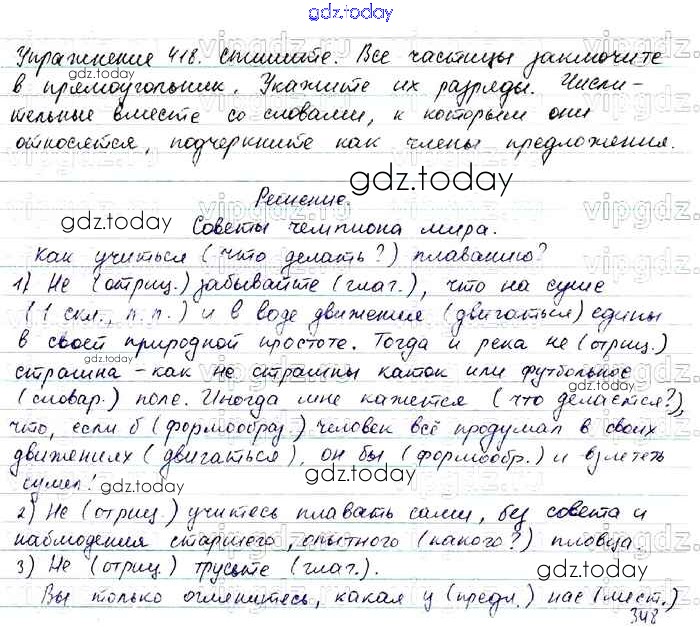 gdz.today
Упражнение 418. Спишите. Все частицы заключите
gdz.today
в прямоугольник. Укажите их разряды. Числи-
тельные вместе со словами, к которым они
относятся, подчеркните как члены предложения.
gdz.today
Решение.
gdz.today
Советы чемпиона мира.
Как учиться (что делать?) плаванию?
1) Не (отриц.) забывайте (глаг.), что на суше
(1 скл., п.п.) и в воде движения (двигаться) едины
в своей природной простоте. Тогда и река не (отриц.)
gdz.today
страшна - как не страшны каток или футбольное
(словар.) поле. Иногда мне кажется (что делается?),
gdz.today
что, если б (формообраз.) человек всё продумал в своих
движениях (двигаться), он бы (формообр.) и взлететь
сумел!
gdz.today
2) Не (отриц.) учитесь плавать сами, без совета и
наблюдения старшего, опытного (какого?) пловца.
3) Не (отриц.) трусьте (глаг.).
gdz.today
Вы только оглянитесь, какая у (предл.) нас (мест.)
348
vipgdz.ru